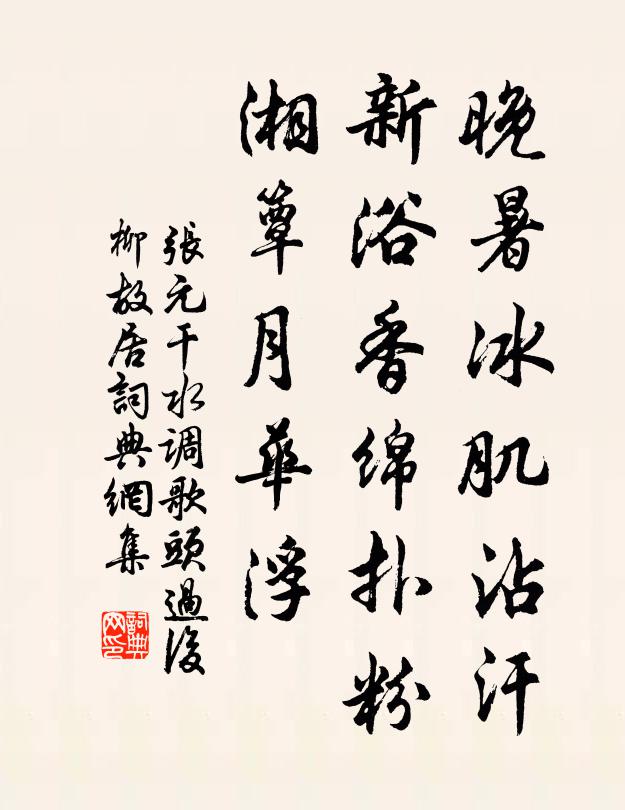 晚暑冰肌沾汗
新浴香绵扑粉
湘簟月華浮
張元干水调歌頭過後
柳故居詞典網集
詞典网印